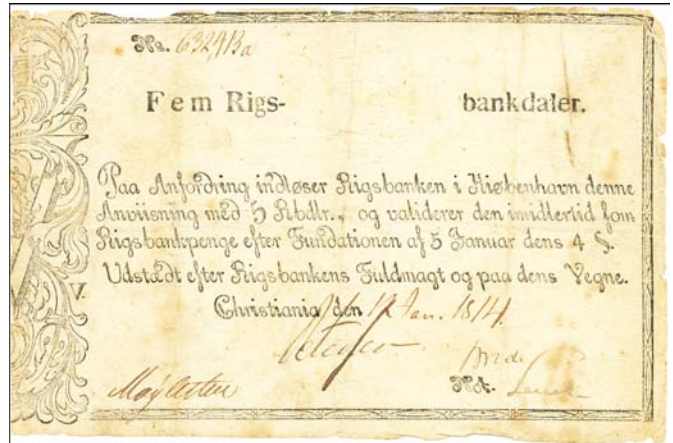 No. 6324Ba
Fem Rigs- bankdaler.
Paa Anfordring indløser Rigsbanken i Kiøbenhavn denne
Anviisning med 5 Rbdlr., og validerer den imidlertid som
Rigsbankpenge efter Fundationen af 5 Januar dens 4 §.
Udstædt efter Rigsbankens Fuldmagt og paa dens Vegne.
V.
Christiania, den 17 Jan. 1814.
Not.